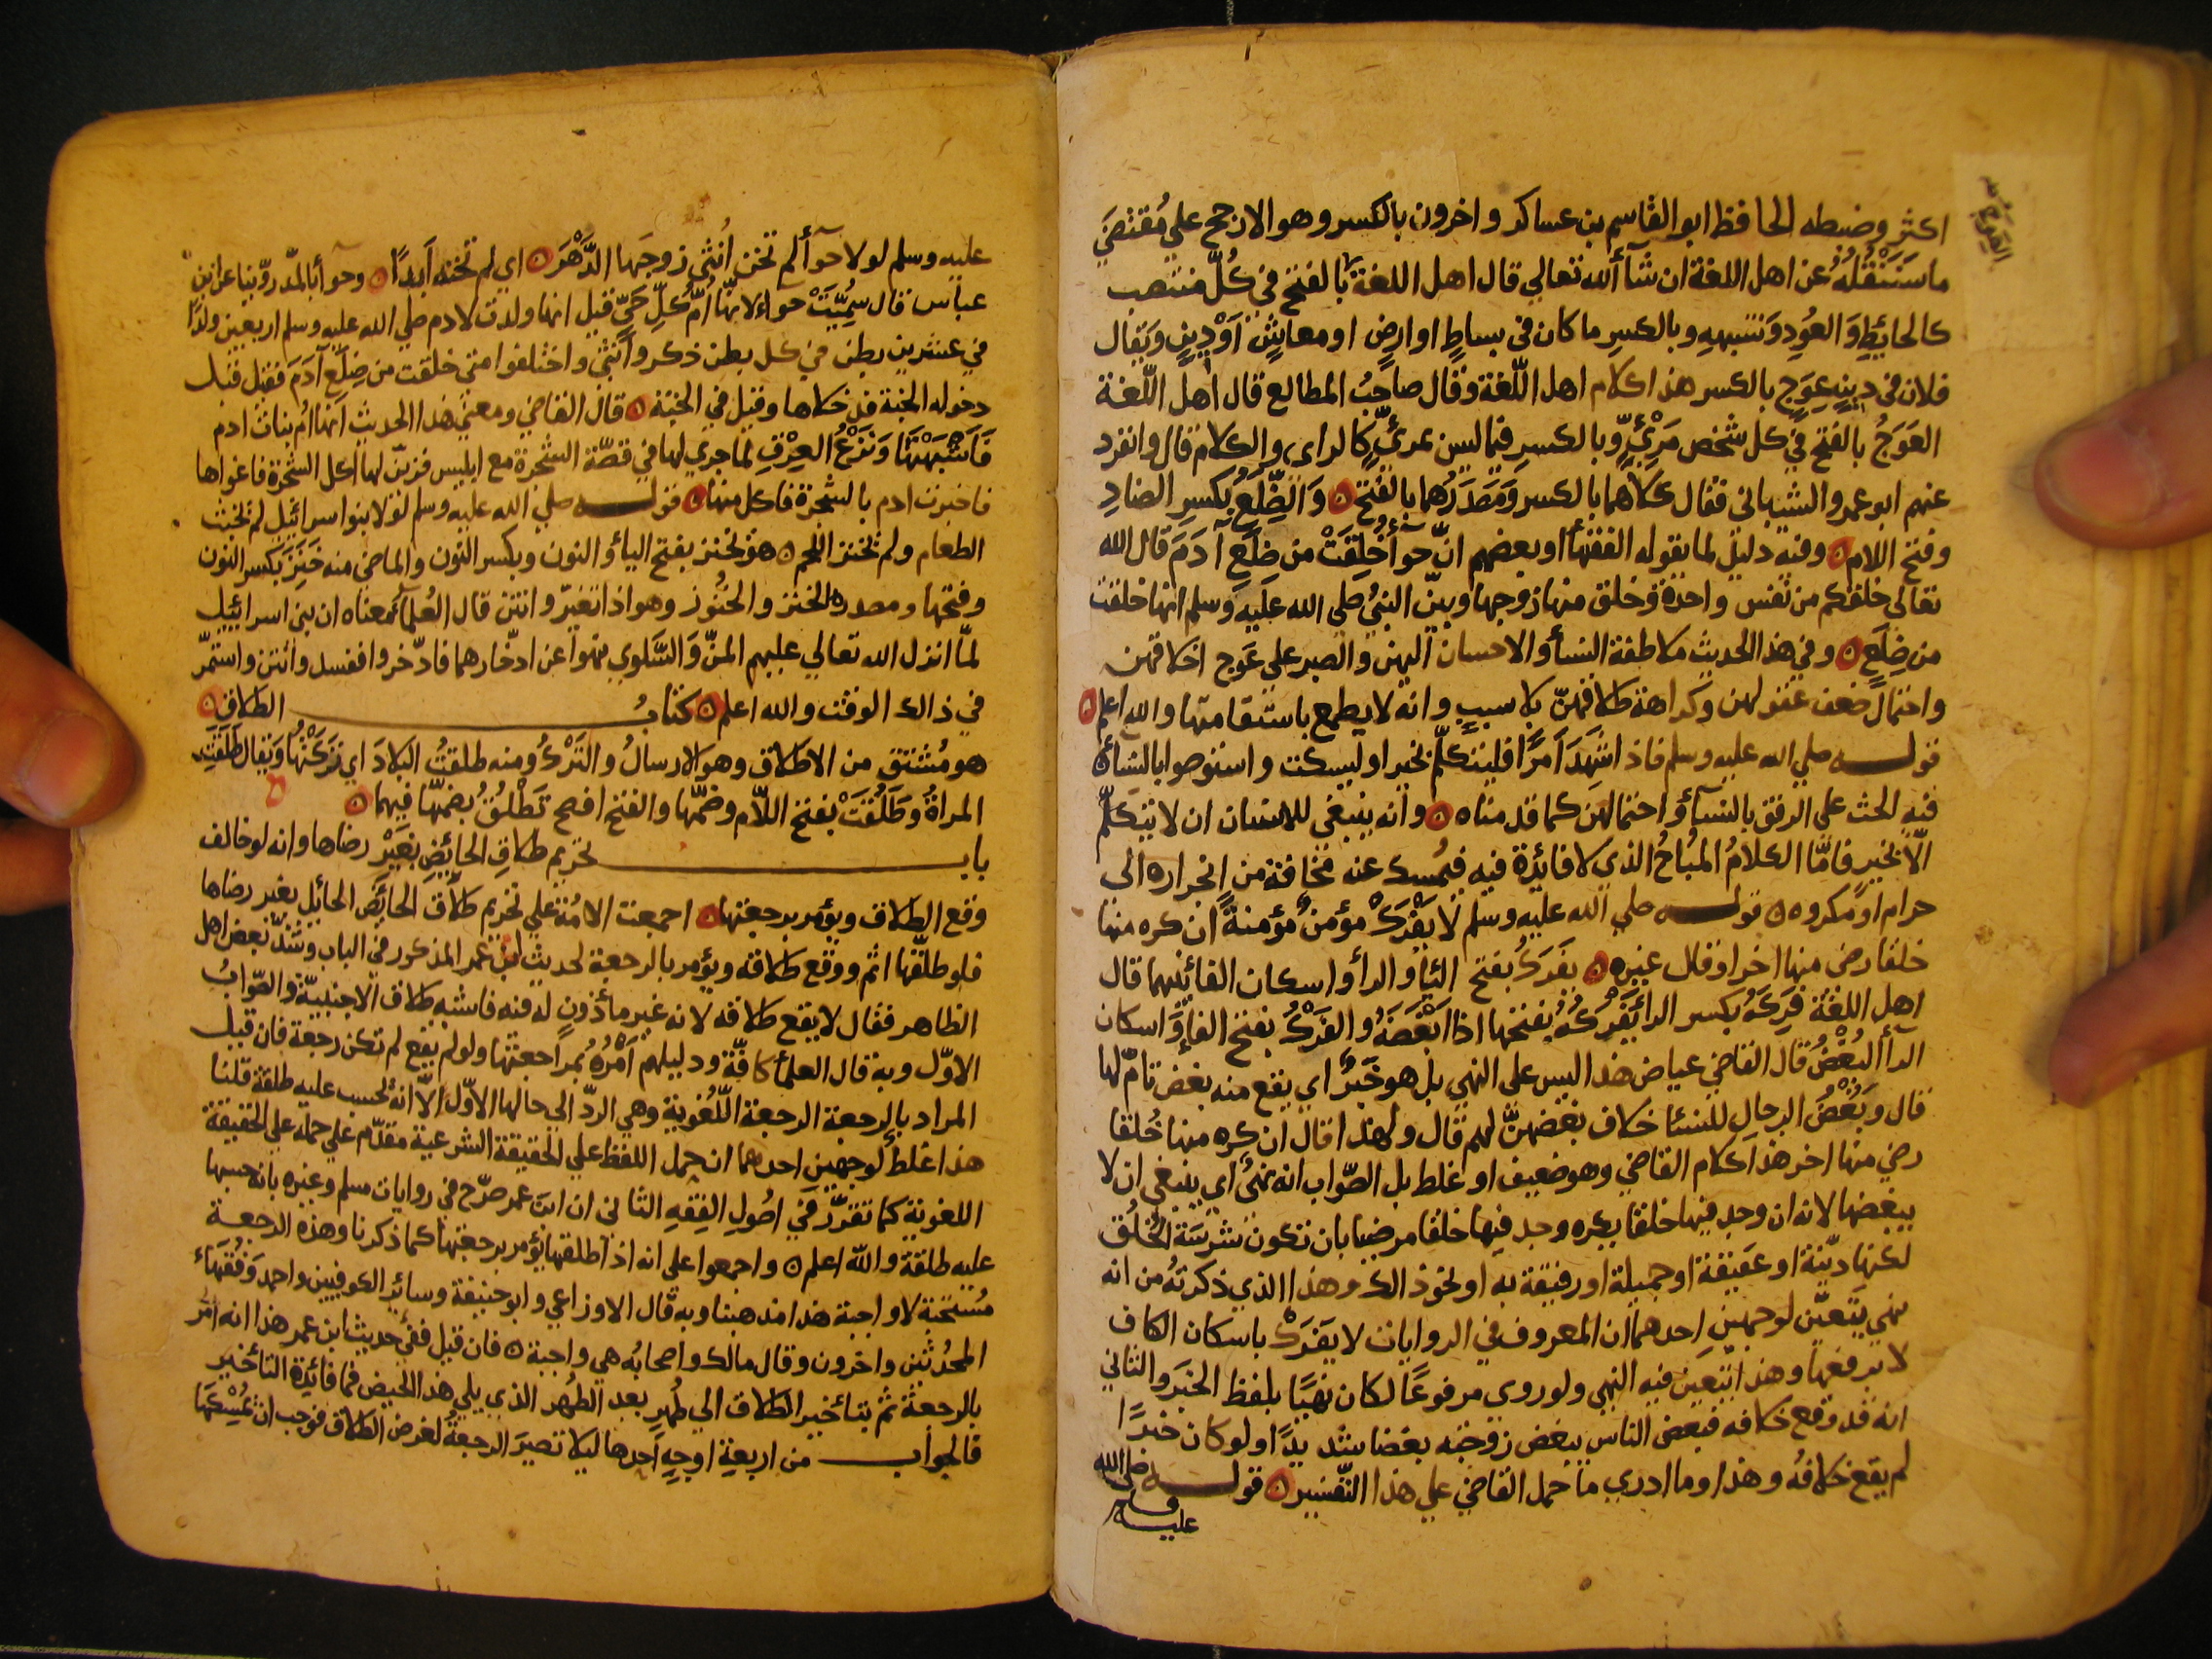 اكثر وضبطه الحافظ ابو القاسم بن عساكر واخرون بالكسر وهو الارجح علي مُقتضَي
ما سَنَنْقُلُهُ عن اهل اللغة ان شآءَ الله تعالي قال اهل اللغة بالفتح في كُلّ منتصب
كالحائِطِ وَالعُودِ وَشبهِهِ وبالكسرِ ما كان في بساطٍ او ارضٍ او معاشٍ اوْ دِينٍ ويقال
فلان في دِينِهِ عِوَج بالكسر هذا كلام اهل اللّغة وقال صاحبُ المطالع قال اهل اللّغة
العَوَجُ بالفتح في كل شخص مَرْئيٍّ وبالكسرِ فيما ليس بمرئيٍّ كالراي والكلام قال وانفرد
عنهم ابو عمرو الشيباني فقال كلاهما بالكسر وَمَصدَرُهما بالفتح ٥ وَالضِّلَعُ بكسرِ الضادِ
وفتح اللام ٥ وفيه دليل لما يقوله الفقهاءُ او بعضهم انّ حوآءَ خُلِقَتْ من ضِلَعِ آدَمَ قال الله
تعالى خلقكم من نفس واحدة وخلق منها زوجها وبيّن النبيُّ صلي الله عليه وسلم انها خلقت
من ضِلَعٍ ٥ وفي هذا الحديث ملاطفة النساءِ والاحسان اليهنّ والصبر على عَوج اخلاقهن
واحتمال ضعف عقولهن وكراهة طلاقهنّ بلا سببٍ وانه لا يطمع باستقامتها والله اعلم ٥
قولـــه صلي الله عليه وسلم فاذا شهدَ اَمرًا فليتكلّم بخيرٍ او ليسكت واستوصوا بالنساءِ ٥
فيه الحث على الرفق بالنساءِ واحتمالهنّ كما قدمناه ٥ وانه ينبغي للانسان ان لا يتكلّم
الّا بخير فامّا الكلامُ المُباحُ الذي لا فائدة فيه فيُمسك عنه مخافة من انجراره الى
حرام او مكروه ٥ قولـــه صلي الله عليه وسلم لا يَفْرَكْ مؤمنٌ مُؤمنةً ان كره منها
خلقا رضي منها اخر او قال غيره ٥ يفرَكُ بفتح الياءِ والراءِ واسكان الفاءِ بينهما قال
اهل اللغة فَرِكَهُ بكسر الراءِ يَفْرَكُهُ بفتحها اذا اَبْغَضَهُ والفَرْكُ بفتح الفاءِ واسكان
الراءِ البُغْضُ قال القاضي عياض هذا ليس على النهي بل هو خَبَرٌ اي يقع منه بغض تامّ لها
قال وَبُغْضُ الرجالِ للنساءِ خلاف بغضهنّ لهم قال ولهذا قال ان كره منها خُلقا
رضي منها اخر هذا كلام القاضي وهو ضعيف او غلط بل الصّواب انه نهىٌ اي ينبغي ان لا
يبغضها لانه ان وجد فيها خلقا يكره وجد فيها خلقا مرضيا بان تكون شرسَة الخُلُق
لكنها ديّنة او عَفيفة او جميلة او رفيقة به او نحو ذلك وهذا الذي ذكرتهُ من انه
نهي يتعيّن لوجهين احدهما ان المعروف في الروايات لا يَفرَكْ باسكان الكاف
لا برفعها وهذا يتعين فيه النهي ولو روي مرفوعًا لكان نهيًا بلفظ الخبَر والثاني
انه قد وقع خلافه فبعض الناس يبغض زوجته بغضا شديدًا ولو كان خبرًا
لم يقع خلافهُ وهذا وما ادري ما حمل القاضي علي هذا التّفسير ٥ قولـــه صلى الله
عليه وسلم
عليه وسلم لولا حوآءُ لم تخن اُنثي زوجَها الدَّهْرَ ٥ اي لم تخنه اَبدًا ٥ وحوآءُ بالمدّ روّينا عن ابن
عباس قال سُمِّيَتْ حواءَ لانها اُمُّ كُلّ حَيٍّ قيل انها ولدت لادم صلي الله عليه وسلم اربعين ولدًا
في عشرين بطن في كل بطن ذكر واُنثى واختلفوا متي خلقت من ضِلَعِ آدَمَ فقيل قبل
دخوله الجنة فدخلاها وقيل في الجنّة ٥ قال القاضي ومعني هذا الحديث اَنها اُم بنات ادم
فَاَشْبَهْنَهَا وَنَزْعُ العِرْقِ لما جري لها في قصّة الشجرة مع ابليس فزيّن لها اكل الشجرة فاغواها
فاخبرت ادم بالشجرة فاكل منها ٥ قولـــه صلي الله عليه وسلم لولا بنوا اسرائيل لم يخبث
الطعام ولم يخنز اللحم ٥ هو يخنز بفتح الياءِ والنون وبكسر النون والماضي منه خَنِزَ بكسر النون
وفتحها ومصدره الخنز والخُنُوز وهو اذا تغيّر وانتن قال العُلمآءُ معناه ان بني اسرائيل
لمّا انزل الله تعالي عليهم المنّ وَالسَّلوي نهوا عن ادّخارهما فادّخروا ففسد وانتن واستمّر
في ذالك الوقت والله اعلم ٥ كتابُ الطلاق ٥
هو مُشتق من الاطلاق وهو الارسالُ والتَرْكُ ومنه طلقتُ البلادَ اي تَرَكْتُهَا ويقال طَلَقَتِ
المراةُ وطَلُقَتْ بفتح اللّام وضمّها والفتح افصح تَطْلُقُ بضمّها فيهما ٥
بابـــ تحريم طلاق الحائِضِ بغَيْر رضاها وانه لو خالف
وقع الطلاق ويؤمر برجعتها ٥ اجمعت الامُة علي تحريم طلاق الحائض الحائِل بغير رضاها
فلو طلّقها اثم ووقع طلاقه ويؤمر بالرجعة لحديث ابن عمر المذكور في الباب وشذّ بعض اهل
الظاهر فقال لا يقع طلاقه لانه غير ماذونٍ له فيه فاشبه طلاق الاجنبيّة والصّوابُ
الاوّل وبه قال العلمآءُ كافّة ودليلهم اَمْرُهُ بمراجعتها ولو لم يقع لم تكن رجعة فان قيل
المراد بالرجعة الرجعة اللّغوية وهي الردّ الي حالها الاوّل الّا انه تُحسب عليه طلقة قلنا
هذا غلطٌ لوجهين احدهما ان حمل اللفظ علي الحقيقة الشرعية مقدّم علي حمله علي الحقيقة
اللغوية كما تقرّر في اصُول الفِقهِ الثاني ان ابن عمر صرّح في روايات مسلم وغيره بانه حسبها
عليه طلقة والله اعلم ٥ واجمعوا علي انه اذا طلقها يؤمر برجعتها كما ذكرنا وهذه الرجعة
مُستحَبّة لا واجبة هذا مذهبنا وبه قال الاوزاعي وابو حنيفة وسائِر الكوفيين واحمد وَفُقَهَاء
المحدُثين واخرون وقال مالك واصحابُه هي واجبة ٥ فان قيل ففي حديث ابن عمر هذا انه اُمر
بالرجعة ثم بتاخير الطلاق الي طُهرٍ بعد الطُهر الذي يلي هذا الحيض فما فائِدة التاْخير
فالجوابـــ من اربعةِ اوجهٍ اَحدها ليلا تصيرَ الرجعةُ لغرض الطلاق فوجب ان يُمْسِكَهَا